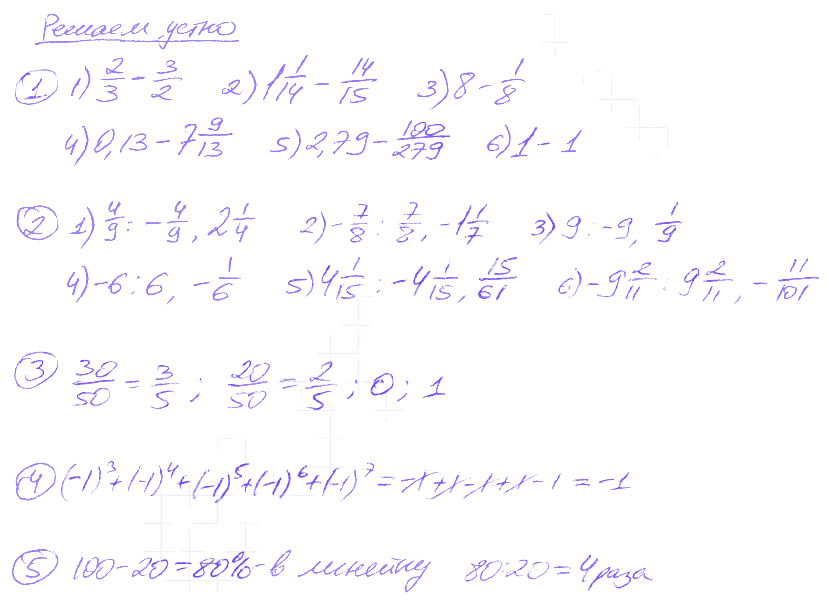 Решаем устно
1. 1) 2/3 - 3/2 2) 1 1/14 - 14/15 3) 8 - 1/8
4) 0,13 - 7 9/13 5) 2,79 - 100/279 6) 1 - 1
2 1) 4/9 : - 4/9, 2 1/4 2) - 7/8 : 7/8, -1 1/7 3) 9 : -9, 1/9
4) -6 : 6, - 1/6 5) 4 1/15 : -4 1/15, 15/61 6) -9 2/11 : 9 2/11, - 11/101
3 30/50 = 3/5 ; 20/50 = 2/5 ; 0 ; 1
4 (-1)³ + (-1)⁴ + (-1)⁵ + (-1)⁶ + (-1)⁷ = -1 + 1 - 1 + 1 - 1 = -1
5 100 - 20 = 80% - в линейку 80:20 = 4 раза